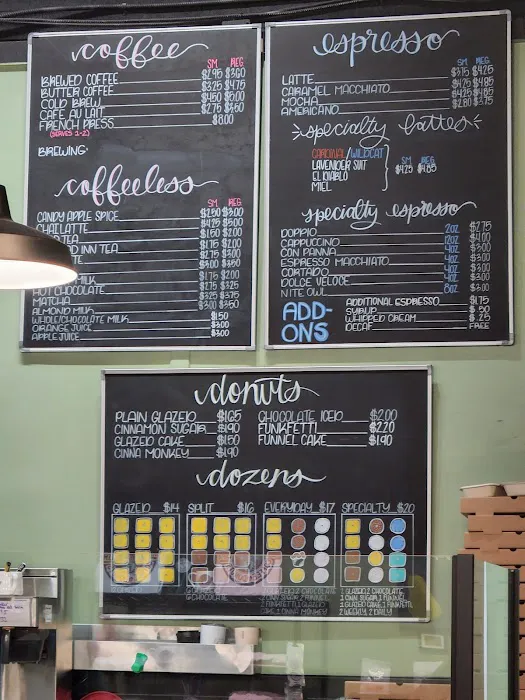 coffee
SM REG
BREWED COFFEE $2.95 $3.60
BUTTER COFFEE $3.25 $4.75
COLD BREW $4.50 $5.00
CAFE AU LAIT $2.75 $3.50
FRENCH PRESS $8.00
(SERVES 1-2)
BREWING:
coffeeless
SM REG
CANDY APPLE SPICE $2.50 $3.00
CHAI LATTE $4.25 $5.00
TEA $1.50 $2.00
INN TEA $1.75 $2.00
$2.75 $3.00
$3.00 $3.50
MILK $1.75 $2.00
HOT CHOCOLATE $2.75 $3.25
MATCHA $3.25 $3.75
ALMOND MILK $3.00 $3.50
WHOLE/CHOCOLATE MILK $1.50
ORANGE JUICE $3.00
APPLE JUICE $3.00
espresso
SM REG
LATTE $3.75 $4.25
CARAMEL MACCHIATO $4.25 $4.85
MOCHA $4.25 $4.85
AMERICANO $2.80 $3.75
specialty lattes
CARDINAL/WILDCAT
LAVENDER SUIT
EL DIABLO
MIEL
SM REG
$4.25 $4.85
specialty espresso
DOPPIO 2OZ $2.75
CAPPUCCINO 12OZ $4.00
CON PANNA 4OZ $3.00
ESPRESSO MACCHIATO 4OZ $3.00
CORTADO 4OZ $3.00
DOLCE VELOCE 4OZ $3.00
NITE OWL 8OZ $3.00
ADD-ONS
ADDITIONAL ESPRESSO $1.75
SYRUP $.50
WHIPPED CREAM $.25
DECAF FREE
donuts
PLAIN GLAZED $1.65
CINNAMON SUGAR $1.90
GLAZED CAKE $1.50
CINNA MONKEY $1.90
CHOCOLATE ICED $2.00
FUNKFETTI $2.20
FUNNEL CAKE $1.90
dozens
GLAZED $14
SPLIT $16
EVERYDAY $17
SPECIALTY $20